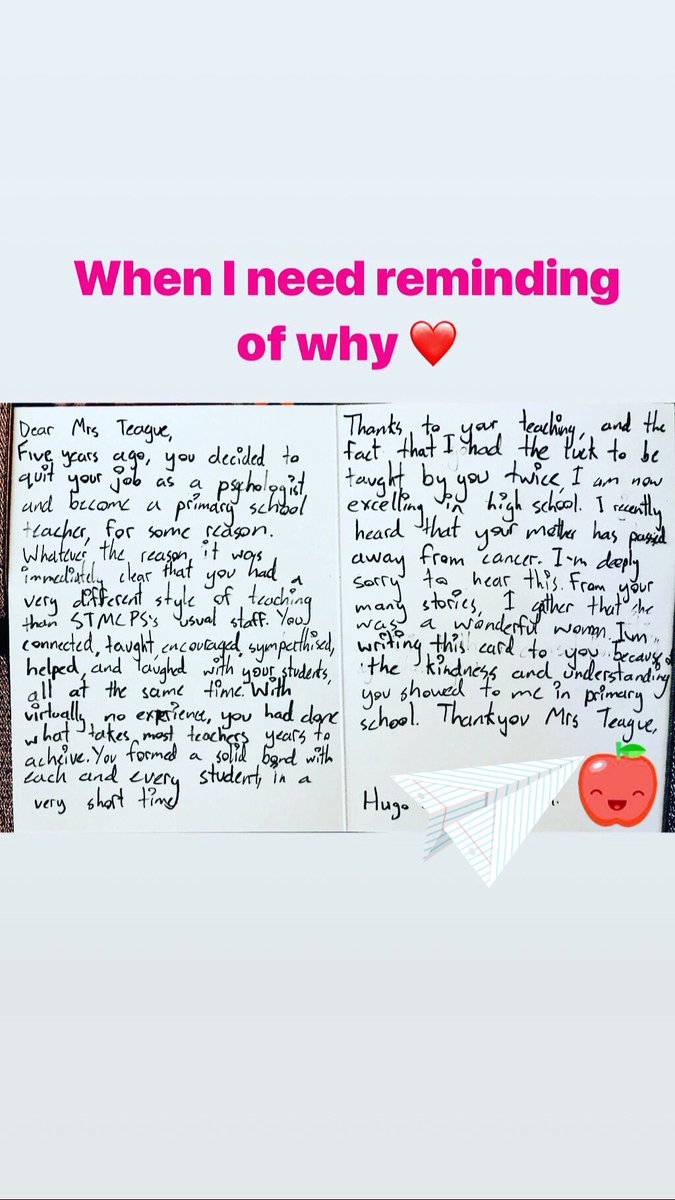 When I need reminding
of why ❤️
Dear Mrs Teague,
Five years ago, you decided to
quit your job as a psychologist,
and become a primary school
teacher, for some reason.
Whatever the reason, it was
immediately clear that you had a
very different style of teaching
than STMCPS's usual staff. You
connected, taught, encouraged, symperthised,
helped, and laughed with your students,
all at the same time. With
virtually no experience, you had done
what takes most teachers years to
acheive. You formed a solid bond with
each and every student, in a
very short time
Thanks to your teaching, and the
fact that I had the luck to be
taught by you twice, I am now
excelling in high school. I recently
heard that your mother has passed
away from cancer. I'm deeply
sorry to hear this. From your
many stories, I gather that she
was a wonderful women. I'm
writing this card to you because of
the kindness and understanding
you showed to me in primary
school. Thankyou Mrs Teague,
Hugo